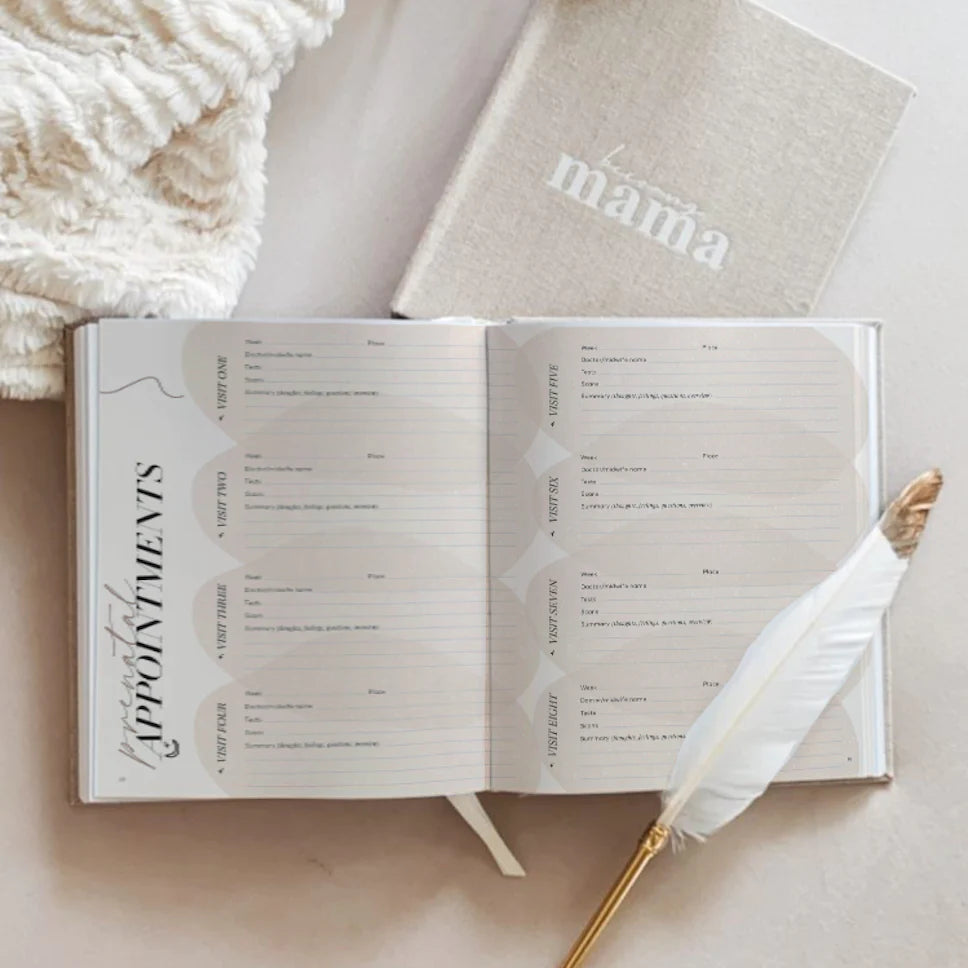 mama
prenatal
APPOINTMENTS
VISIT ONE
Week Place
Doctor/midwife name
Tests
Scans
Summary (thoughts, feelings, questions,
VISIT TWO
Week Place
Doctor/midwife name
Tests
Scans
Summary (thoughts, feelings, questions,
VISIT THREE
Week Place
Doctor/midwife name
Tests
Scans
Summary (thoughts, feelings, questions,
VISIT FOUR
Week Place
Doctor/midwife name
Tests
Scans
Summary (thoughts, feelings, questions,
VISIT FIVE
Week Place
Doctor/midwife name
Tests
Scans
Summary (thoughts, feelings, questions,
VISIT SIX
Week Place
Doctor/midwife name
Tests
Scans
Summary (thoughts, feelings, questions,
VISIT SEVEN
Week Place
Doctor/midwife name
Tests
Scans
Summary (thoughts, feelings, questions,
VISIT EIGHT
Week Place
Doctor/midwife name
Tests
Scans
Summary (thoughts, feelings